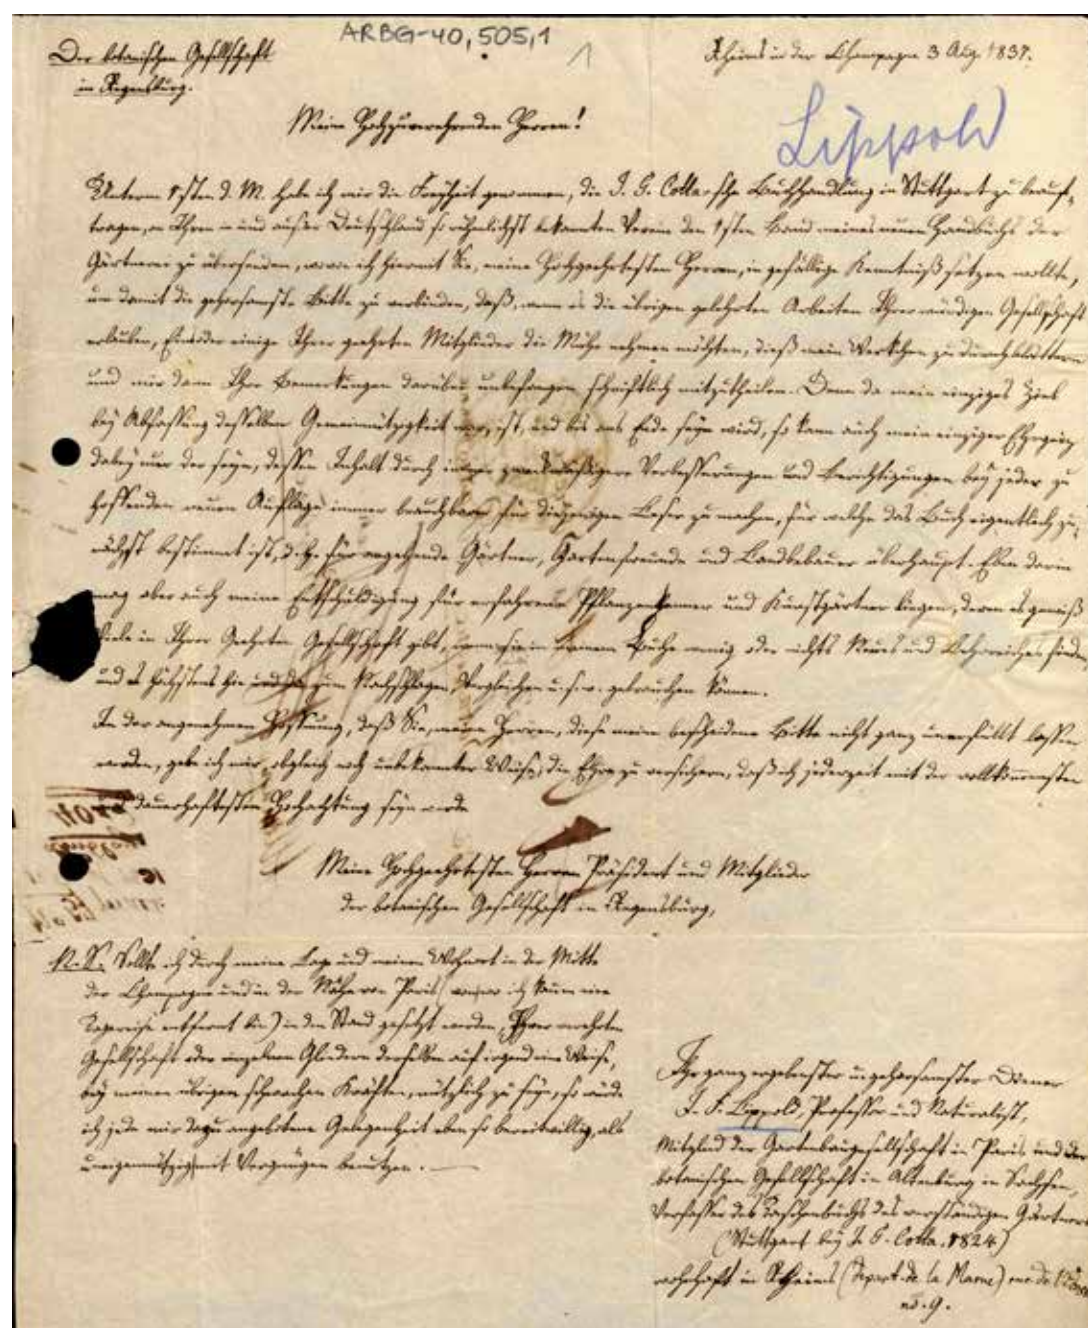 ARBG-40,505,1
1
Der botanischen Gesellschaft
in Regensburg.
Rheims in der Champagne 3 Aug. 1837.
Lippold
Meine Hochzuverehrenden Herren!
Unterm 1sten d. M. habe ich mir die Freyheit genommen, die J. G. Cotta'sche Buchhandlung in Stuttgart zu beauf-
tragen, an Ihren in und außer Deutschland so rühmlichst bekannten Verein den 1sten Band meines neuen Handbuchs der
Gärtnerei zu übersenden, wovon ich hiermit Sie, meine Hochgeehrtesten Herren, in gefällige Kenntniß setzen wollte,
um damit die gehorsamste Bitte zu verbinden, daß, wenn es die übrigen gelehrten Arbeiten Ihrer würdigen Gesellschaft
erlauben, Eins oder einige Ihrer geehrten Mitglieder die Mühe nehmen möchten, dieß mein Werkchen zu durchblättern
und mir dann Ihre Bemerkungen darüber unbefangen schriftlich mitzutheilen. Denn da mein einziges Ziel
bey Abfassung desselben Gemeinnützigkeit war, ist, und bis ans Ende seyn wird, so kann auch mein einziger Ehrgeiz
dabey nur der seyn, dessen Inhalt durch immer zweckmäßigere Verbesserungen und Berichtigungen bey jeder zu
hoffenden neuen Auflage immer brauchbarer für diejenigen Leser zu machen, für welche das Buch eigentlich zu-
nächst bestimmt ist, d. h. für angehende Gärtner, Gartenfreunde und Landbebauer überhaupt. Eben darin
mag aber auch meine Entschuldigung für erfahrene Pflanzenkenner und Kunstgärtner liegen, deren es gewiß
viele in Ihrer Geehrten Gesellschaft gibt, wenn sie in meinem Buche wenig oder nichts Neues und Lehrreiches finden,
und es höchstens hie und da zum Nachschlagen, Vergleichen u. s. w. gebrauchen können.
In der angenehmen Hoffnung, daß Sie, meine Herren, diese meine bescheidene Bitte nicht ganz unerfüllt lassen
werden, gebe ich mir, obgleich noch unbekannter Weise, die Ehre zu versichern, daß ich jederzeit mit der vollkommensten
dauerhaftesten Hochachtung seyn werde
Meine Hochgeehrtesten Herren Präsident und Mitglieder
der botanischen Gesellschaft in Regensburg,
N. S. Sollte ich durch meine Lage und meinen Wohnort in der Mitte
der Champagne und in der Nähe von Paris (wovon ich kaum eine
Tagereise entfernt bin) in den Stand gesetzt werden, Ihrer verehrten
Gesellschaft oder einzelnen Gliedern derselben auf irgend eine Weise,
bey meinen übrigen schwachen Kräften, nützlich zu seyn, so würde
ich jede mir dazu angebotene Gelegenheit eben so bereitwillig, als
uneigennützig mit Vergnügen benutzen. —
Ihr ganz ergebenster u. gehorsamster Diener
J. F. Lippold, Professor und Naturalist,
Mitglied der Gartenbaugesellschaft in Paris und der
botanischen Gesellschaft in Altenburg in Sachsen,
Verfasser des Taschenbuchs des verständigen Gärtners
(Stuttgart bey J. G. Cotta. 1824)
wohnhaft in Rheims (Depart. de la Marne) rue de
no. 9.